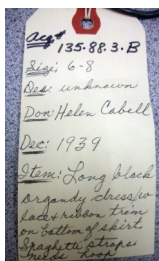 Acq#
135.88.3.B
Size: 6-8
Des: unknown
Don: Helen Cabell
Dec: 1939
Item: Long black
organdy dress/w
lace & ribbon trim
on bottom of skirt.
Spaghetti straps.
Needs hook